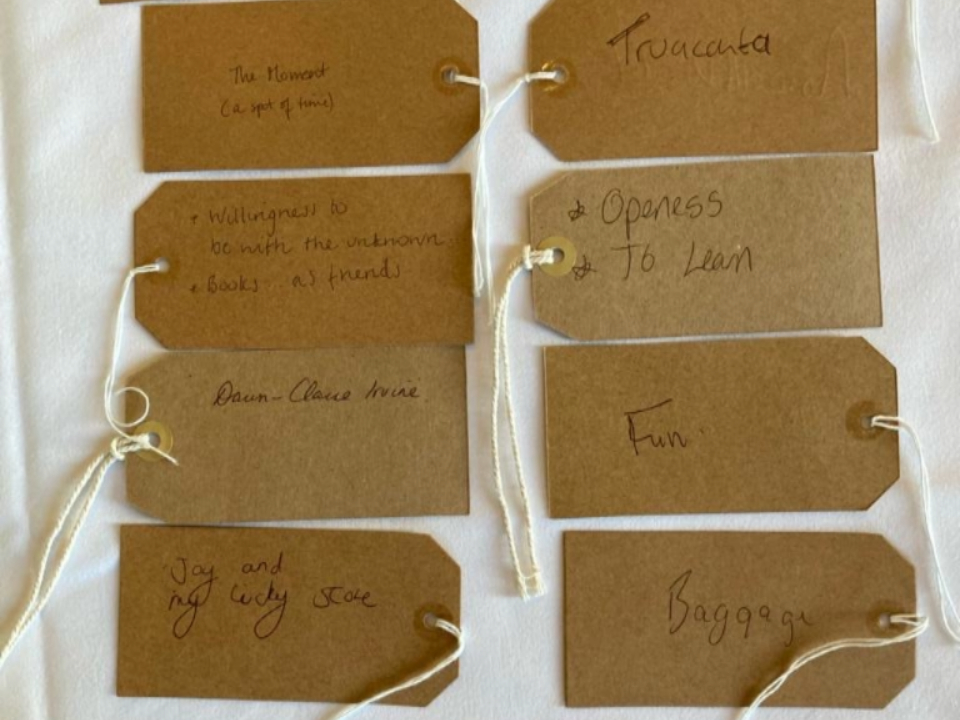 The Moment
(a spot of time)
Truacanta
* Willingness to
be with the unknown.
* Books as friends
* Openess
* To Lean
Dawn-Claire Irvine
Fun.
Joy and
my lucky
Baggage